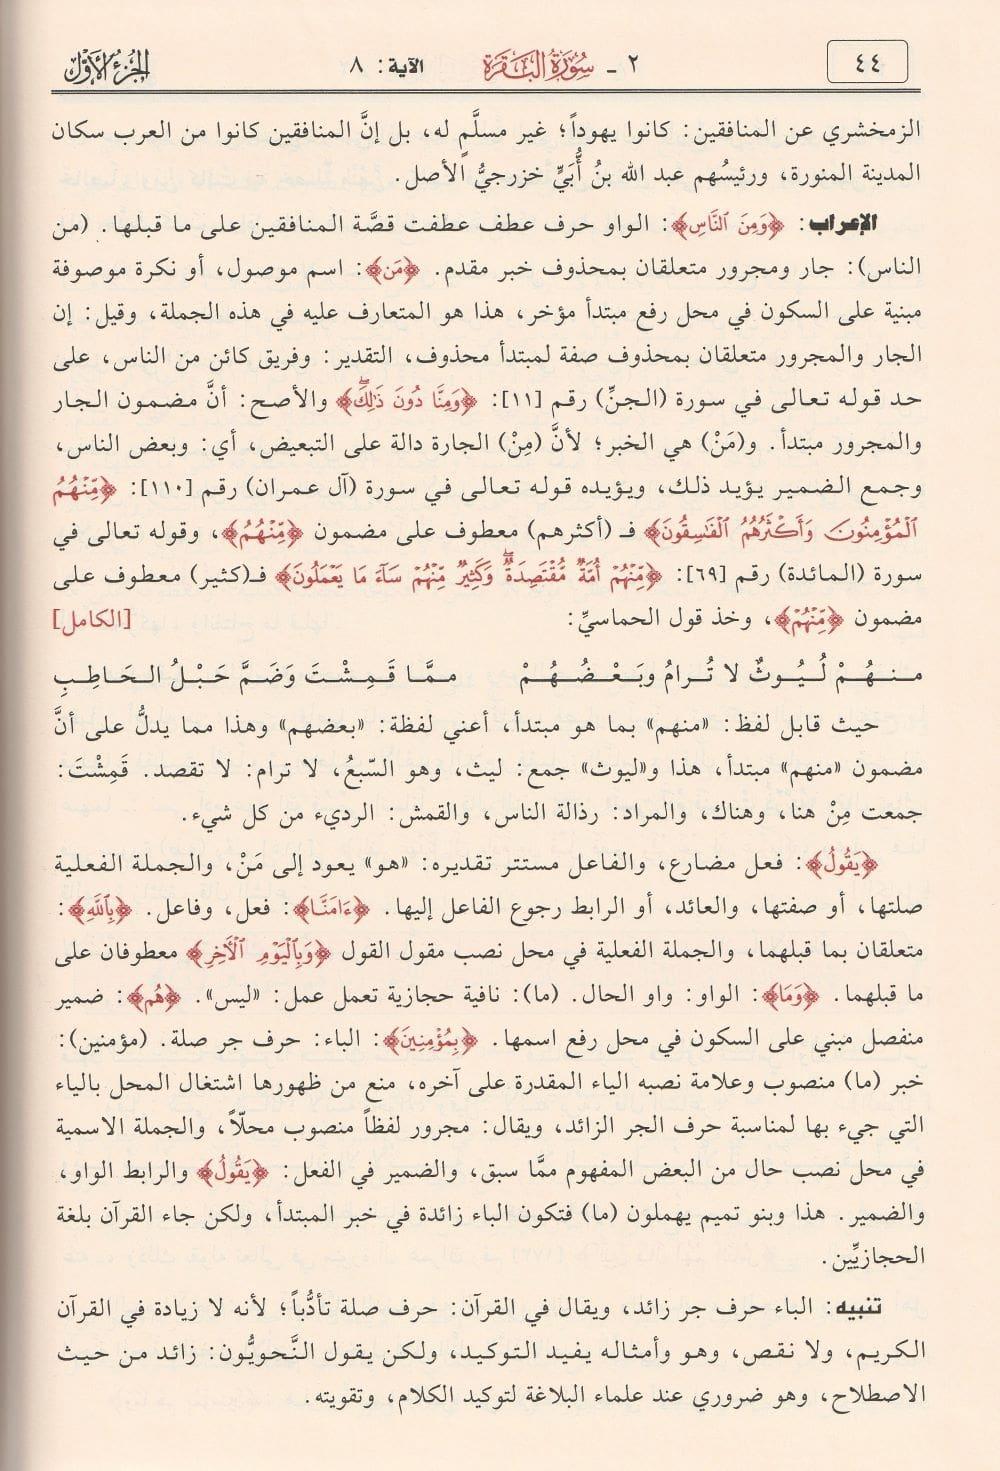 ٤٤
٢ - سُورَةُ البَقَرَة
الآية: ٨
الجُزْءُ الأَوَّل
الزمخشري عن المنافقين: كانوا يهوداً؛ غير مسلَّم له، بل إنَّ المنافقين كانوا من العرب سكان
المدينة المنورة، ورئيسُهم عبد الله بنُ أُبَيٍّ خزرجيُّ الأصل.
الإعراب: ﴿وَمِنَ النَّاسِ﴾: الواو حرف عطف عطفت قصَّة المنافقين على ما قبلها. (من
الناس): جار ومجرور متعلقان بمحذوف خبر مقدم. ﴿مَن﴾: اسم موصول، أو نكرة موصوفة
مبنية على السكون في محل رفع مبتدأ مؤخر، هذا هو المتعارف عليه في هذه الجملة، وقيل: إن
الجار والمجرور متعلقان بمحذوف صفة لمبتدأ محذوف، التقدير: وفريق كائن من الناس، على
حد قوله تعالى في سورة (الجنِّ) رقم [١١]: ﴿وَمِنَّا دُونَ ذَٰلِكَۖ﴾ والأصح: أنَّ مضمون الجار
والمجرور مبتدأ. و(مَنْ) هي الخبر؛ لأنَّ (مِنْ) الجارة دالة على التبعيض، أي: وبعض الناس،
وجمع الضمير يؤيد ذلك، ويؤيده قوله تعالى في سورة (آل عمران) رقم [١١٠]: ﴿مِّنْهُمُ
الْمُؤْمِنُونَ وَأَكْثَرُهُمُ الْفَاسِقُونَ﴾ فـ (أكثرهم) معطوف على مضمون ﴿مِّنْهُمُ﴾، وقوله تعالى في
سورة (المائدة) رقم [٦٩]: ﴿مِّنْهُمْ أُمَّةٌ مُّقْتَصِدَةٌۖ وَكَثِيرٌ مِّنْهُمْ سَآءَ مَا يَعْمَلُونَ﴾ فـ(كثير) معطوف على
مضمون ﴿مِّنْهُمْ﴾، وخذ قول الحماسيِّ: [الكامل]
مـنـهُـمْ لُـيُوثٌ لا تُـرامُ وبَـعْـضُـهُـمْ مـمَّـا قَـمِـشْـتَ وَضَـمَّ حَـبْـلُ الـحَـاطِـبِ
حيث قابل لفظ: «منهم» بما هو مبتدأ، أعني لفظة: «بعضهم» وهذا مما يدلُّ على أنَّ
مضمون «منهم» مبتدأ، هذا و«ليوث» جمع: ليث، وهو السّبعُ، لا ترام: لا تقصد. قَمِشْتَ:
جمعت مِنْ هنا، وهناك، والمراد: رذالة الناس، والقمش: الرديء من كل شيء.
﴿يَقُولُ﴾: فعل مضارع، والفاعل مستتر تقديره: «هو» يعود إلى مَنْ، والجملة الفعلية
صلتها، أو صفتها، والعائد، أو الرابط رجوع الفاعل إليها. ﴿ءَامَنَّا﴾: فعل، وفاعل. ﴿بِاللَّهِ﴾:
متعلقان بما قبلهما، والجملة الفعلية في محل نصب مقول القول ﴿وَبِالْيَوْمِ الْآخِرِ﴾ معطوفان على
ما قبلهما. ﴿وَمَا﴾: الواو: واو الحال. (ما): نافية حجازية تعمل عمل: «ليس». ﴿هُم﴾: ضمير
منفصل مبني على السكون في محل رفع اسمها. ﴿بِمُؤْمِنِينَ﴾: الباء: حرف جر صلة. (مؤمنين):
خبر (ما) منصوب وعلامة نصبه الياء المقدرة على آخره، منع من ظهورها اشتغال المحل بالياء
التي جيء بها لمناسبة حرف الجر الزائد، ويقال: مجرور لفظاً منصوب محلّاً، والجملة الاسمية
في محل نصب حال من البعض المفهوم ممَّا سبق، والضمير في الفعل: ﴿يَقُولُ﴾ والرابط الواو،
والضمير. هذا وبنو تميم يهملون (ما) فتكون الباء زائدة في خبر المبتدأ، ولكن جاء القرآن بلغة
الحجازيِّين.
تنبيه: الباء حرف جر زائد، ويقال في القرآن: حرف صلة تأدُّباً؛ لأنه لا زيادة في القرآن
الكريم، ولا نقص، وهو وأمثاله يفيد التوكيد، ولكن يقول النَّحويُّون: زائد من حيث
الاصطلاح، وهو ضروري عند علماء البلاغة لتوكيد الكلام، وتقويته.